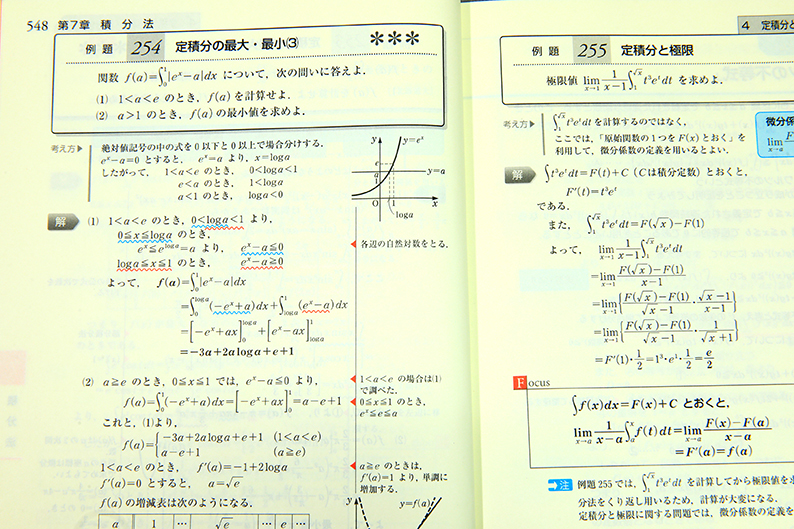 548 第7章 積分法
例題 254 定積分の最大・最小(3) ***
関数 f(a)=∫₀¹|eˣ−a|dx について,次の問いに答えよ.
(1) 1<a<e のとき,f(a)を計算せよ.
(2) a>1 のとき,f(a)の最小値を求めよ.
考え方 絶対値記号の中の式を0以下と0以上で場合分けする.
eˣ−a=0 とすると, eˣ=a より,x=log a
したがって, 1<a<e のとき, 0<log a<1
e<a のとき, 1<log a
a<1 のとき, log a<0
y
y=eˣ
e
a
y=a
1
O
1
x
log a
解 (1) 1<a<e のとき,0<log a<1 より,
0≦x≦log a のとき,
eˣ≦e^{log a}=a より, eˣ−a≦0
各辺の自然対数をとる.
log a≦x≦1 のとき, eˣ−a≧0
よって, f(a)=∫₀¹|eˣ−a|dx
=∫₀^{log a}(−eˣ+a)dx+∫_{log a}¹(eˣ−a)dx
=[−eˣ+ax]₀^{log a}+[eˣ−ax]_{log a}¹
=−3a+2a log a+e+1
(2) a≧e のとき,0≦x≦1 では, eˣ−a≦0 より,
f(a)=∫₀¹(−eˣ+a)dx=[−eˣ+ax]₀¹=a−e+1
1<a<e の場合は(1)
で調べた.
0≦x≦1 のとき,
eˣ≦e≦a
これと,(1)より,
f(a)={−3a+2a log a+e+1 (1<a<e)
a−e+1 (a≧e)
1<a<e のとき, f′(a)=−1+2log a
f′(a)=0 とすると, a=√e
a≧e のときは,
f′(a)=1 より,単調に
増加する.
f(a)の増減表は次のようになる.
y
y=f(a)
a … √e …
4 定積分と
例題 255 定積分と極限
極限値 lim_{x→1} 1/(x−1)∫₁^{√x} t³eᵗdt を求めよ.
考え方 ∫₁^{√x} t³eᵗdt を計算するのではなく,
ここでは,「原始関数の1つを F(x) とおく」を
利用して,微分係数の定義を用いるとよい.
微分係
lim_{x→a} F
解 ∫t³eᵗdt=F(t)+C (Cは積分定数) とおくと,
F′(t)=t³eᵗ
である.
また, ∫₁^{√x} t³eᵗdt=F(√x)−F(1)
よって, lim_{x→1} 1/(x−1)∫₁^{√x} t³eᵗdt
=lim_{x→1} (F(√x)−F(1))/(x−1)
=lim_{x→1}{(F(√x)−F(1))/(√x−1)・(√x−1)/(x−1)}
=lim_{x→1}{(F(√x)−F(1))/(√x−1)・1/(√x+1)}
=F′(1)・1/2=1³・e¹・1/2=e/2
Focus
∫f(x)dx=F(x)+C とおくと,
lim_{x→a} 1/(x−a)∫ₐˣ f(t)dt=lim_{x→a} (F(x)−F(a))/(x−a)
=F′(a)=f(a)
注 例題255では,∫₁^{√x} t³eᵗdt を計算してから極限値を求
方法をくり返し用いるため,計算が大変になる.
定積分と極限に関する問題では,微分係数の定義を